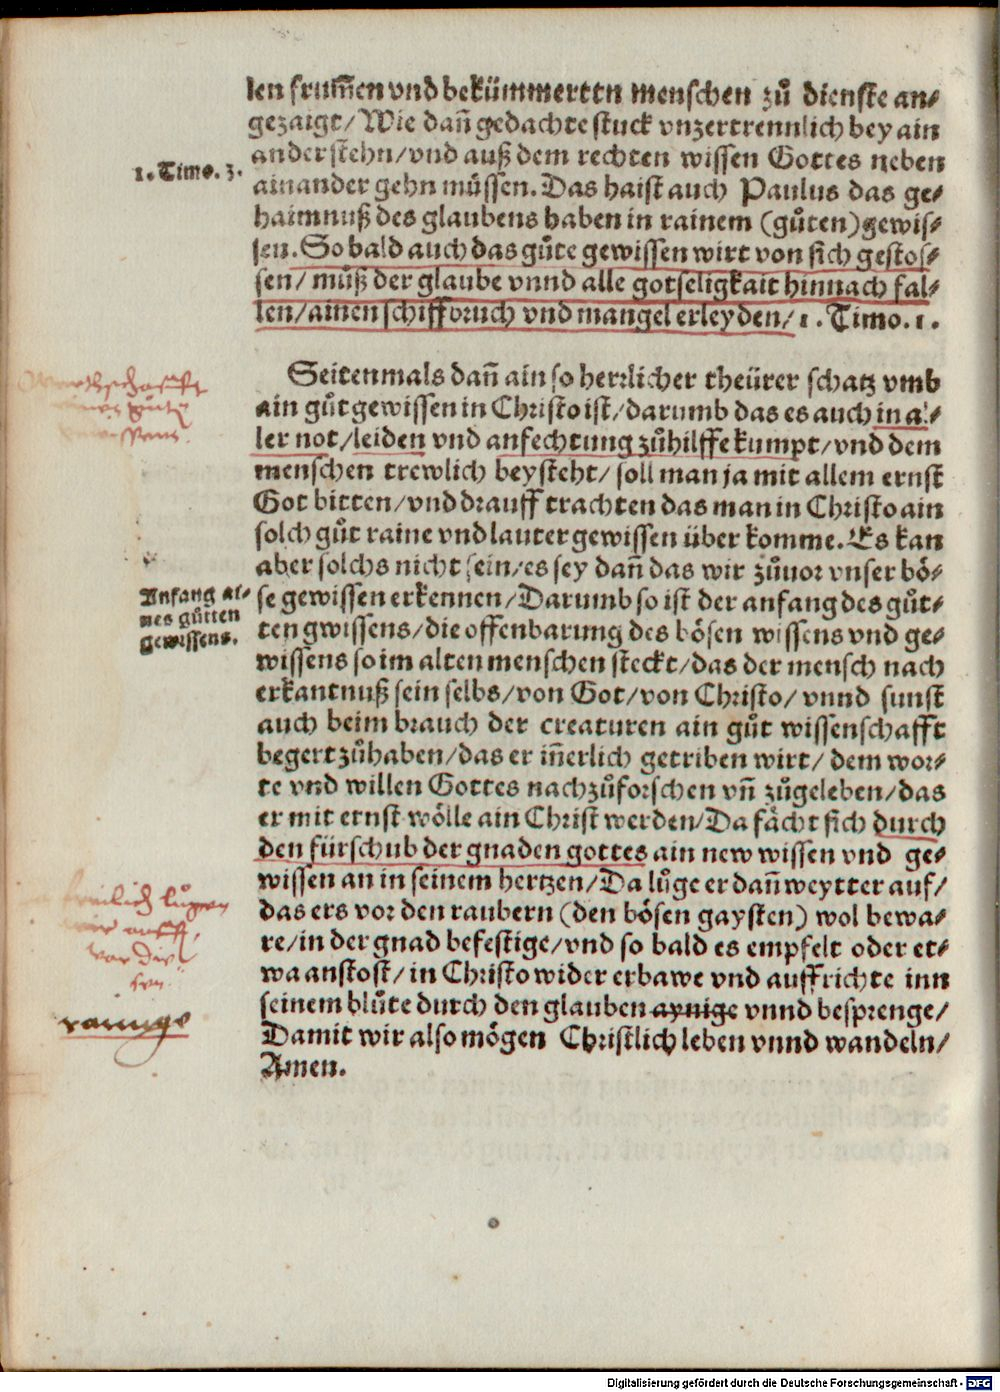 len frum̃en vnd bekümmerttn menschen zů dienste an⸗
gezaigt/ Wie dañ gedachte stuck vnzertrennlich bey ain
ander stehn/vnd auß dem rechten wissen Gottes neben
1. Timo. 3.
ainander gehn müssen. Das haist auch Paulus das ge⸗
haimnuß des glaubens haben in rainem (gůten) gewis⸗
sen. So bald auch das gůte gewissen wirt von sich gestos⸗
sen/ můß der glaube vnnd alle gotseligkait hinnach fal⸗
len/ainen schiffbruch vnd mangel erleyden/ 1. Timo. 1.
Seitenmals dañ ain so herrlicher theürer schatz vmb
ain gůt gewissen in Christo ist/darumb das es auch in al⸗
ler not/leiden vnd anfechtung zůhilffe kumpt/vnd dem
menschen trewlich beysteht/ soll man ja mit allem ernst
Got bitten/vnd drauff trachten das man in Christo ain
solch gůt raine vnd lauter gewissen über komme. Es kan
aber solchs nicht sein/es sey dañ das wir zůuor vnser bö⸗
Anfang ai⸗
nes gůtten
gewissens.
se gewissen erkennen/Darumb so ist der anfang des gůt⸗
ten gwissens/die offenbarung des bösen wissens vnd ge⸗
wissens so im alten menschen steckt/das der mensch nach
erkantnuß sein selbs/von Got/von Christo/ vnnd sunst
auch beim brauch der creaturen ain gůt wissenschafft
begert zůhaben/das er iñerlich getriben wirt/ dem wor⸗
te vnd willen Gottes nachzůforschen vñ zůgeleben/das
er mit ernst wölle ain Christ werden/Da fächt sich durch
den fürschub der gnaden gottes ain new wissen vnd ge⸗
wissen an in seinem hertzen/Da lůge er dañ weytter auf/
das ers vor den raubern (den bösen gaysten) wol bewa⸗
re/in der gnad befestige/vnd so bald es empfelt oder et⸗
wa anstost/ in Christo wider erbawe vnd auffrichte inn
seinem blůte durch den glauben aynige vnnd besprenge/
rainige
Damit wir also mögen Christlich leben vnnd wandeln/
Amen.
Digitalisierung gefördert durch die Deutsche Forschungsgemeinschaft - DFG